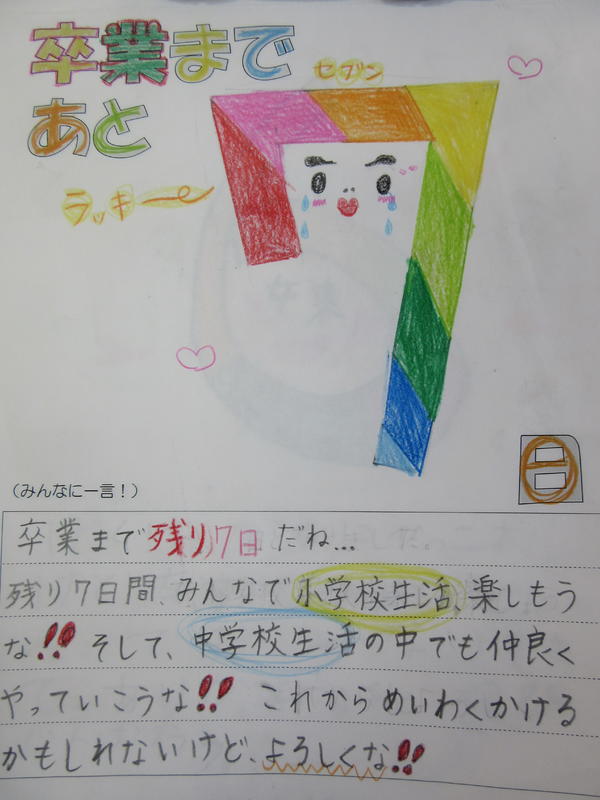 卒業まで
あと
セブン
ラッキー
7
日
(みんなに一言!)
卒業まで残り7日だね…
残り7日間、みんなで小学校生活、楽しもう
な!! そして、中学校生活の中でも仲良く
やっていこうな!! これからめいわくかける
かもしれないけど、よろしくな!!